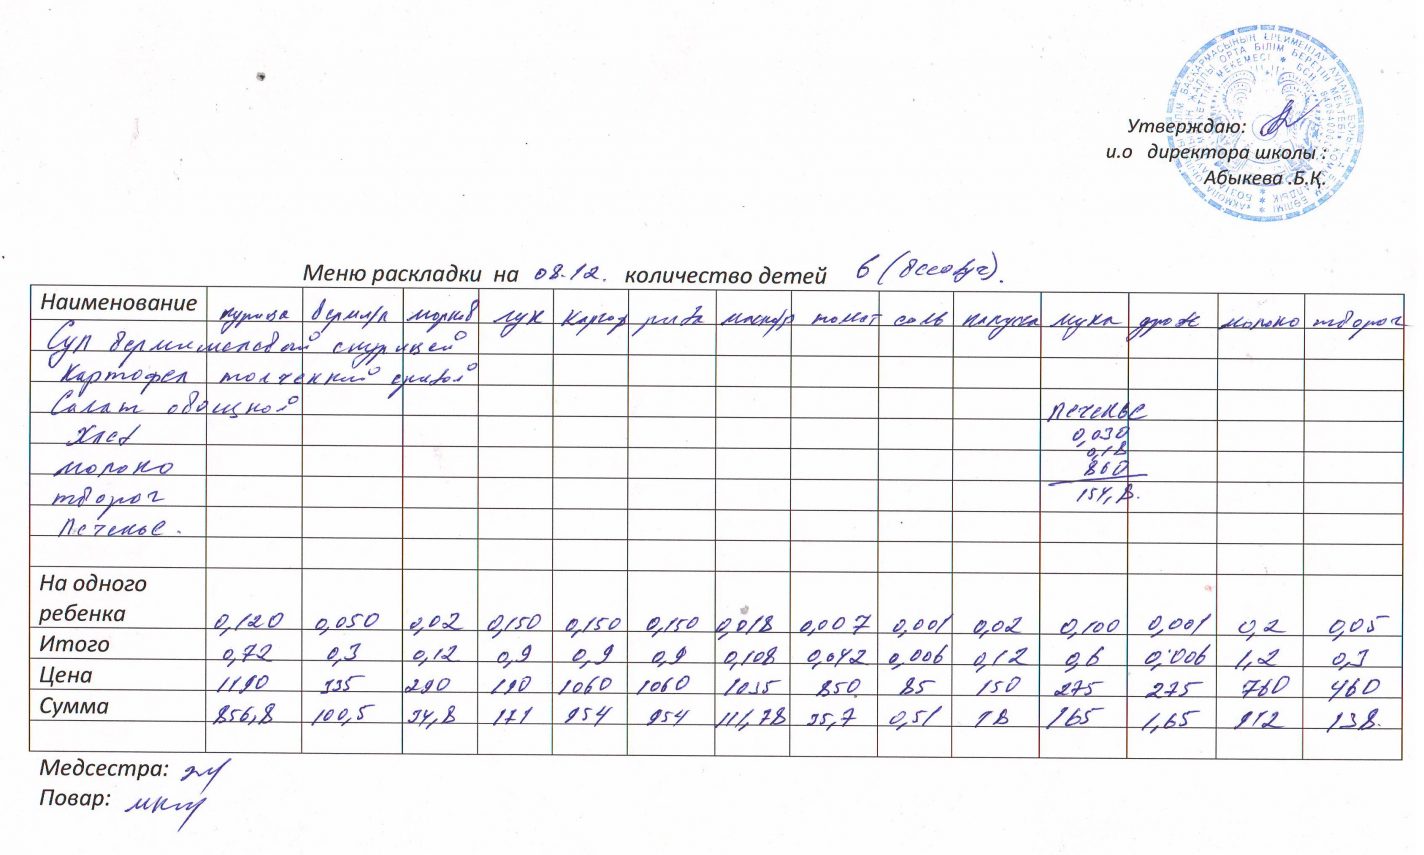 Утверждаю:
и.о директора школы :
Абыкева .Б.Қ.
Меню раскладки на 08.12. количество детей 6 (
Наименование курица вермил морков лук картоф рыба масл томат соль капуста мука дрож молоко творог
Суп вермишелевой с курицей
Картофел толченный с рыбой
Салат овощной печенье
Хлеб 0,030
0,18
молоко 860
творог 154,8.
Печенье.
На одного
ребенка 0,120 0,050 0,02 0,150 0,150 0,150 0,018 0,007 0,001 0,02 0,100 0,001 0,2 0,05
Итого 0,72 0,3 0,12 0,9 0,9 0,9 0,108 0,042 0,006 0,12 0,6 0,006 1,2 0,3
Цена 1190 335 290 190 1060 1060 1035 850 85 150 275 275 760 460
Сумма 856,8 100,5 34,8 171 954 954 111,78 35,7 0,51 18 165 1,65 912 138.
Медсестра:
Повар: